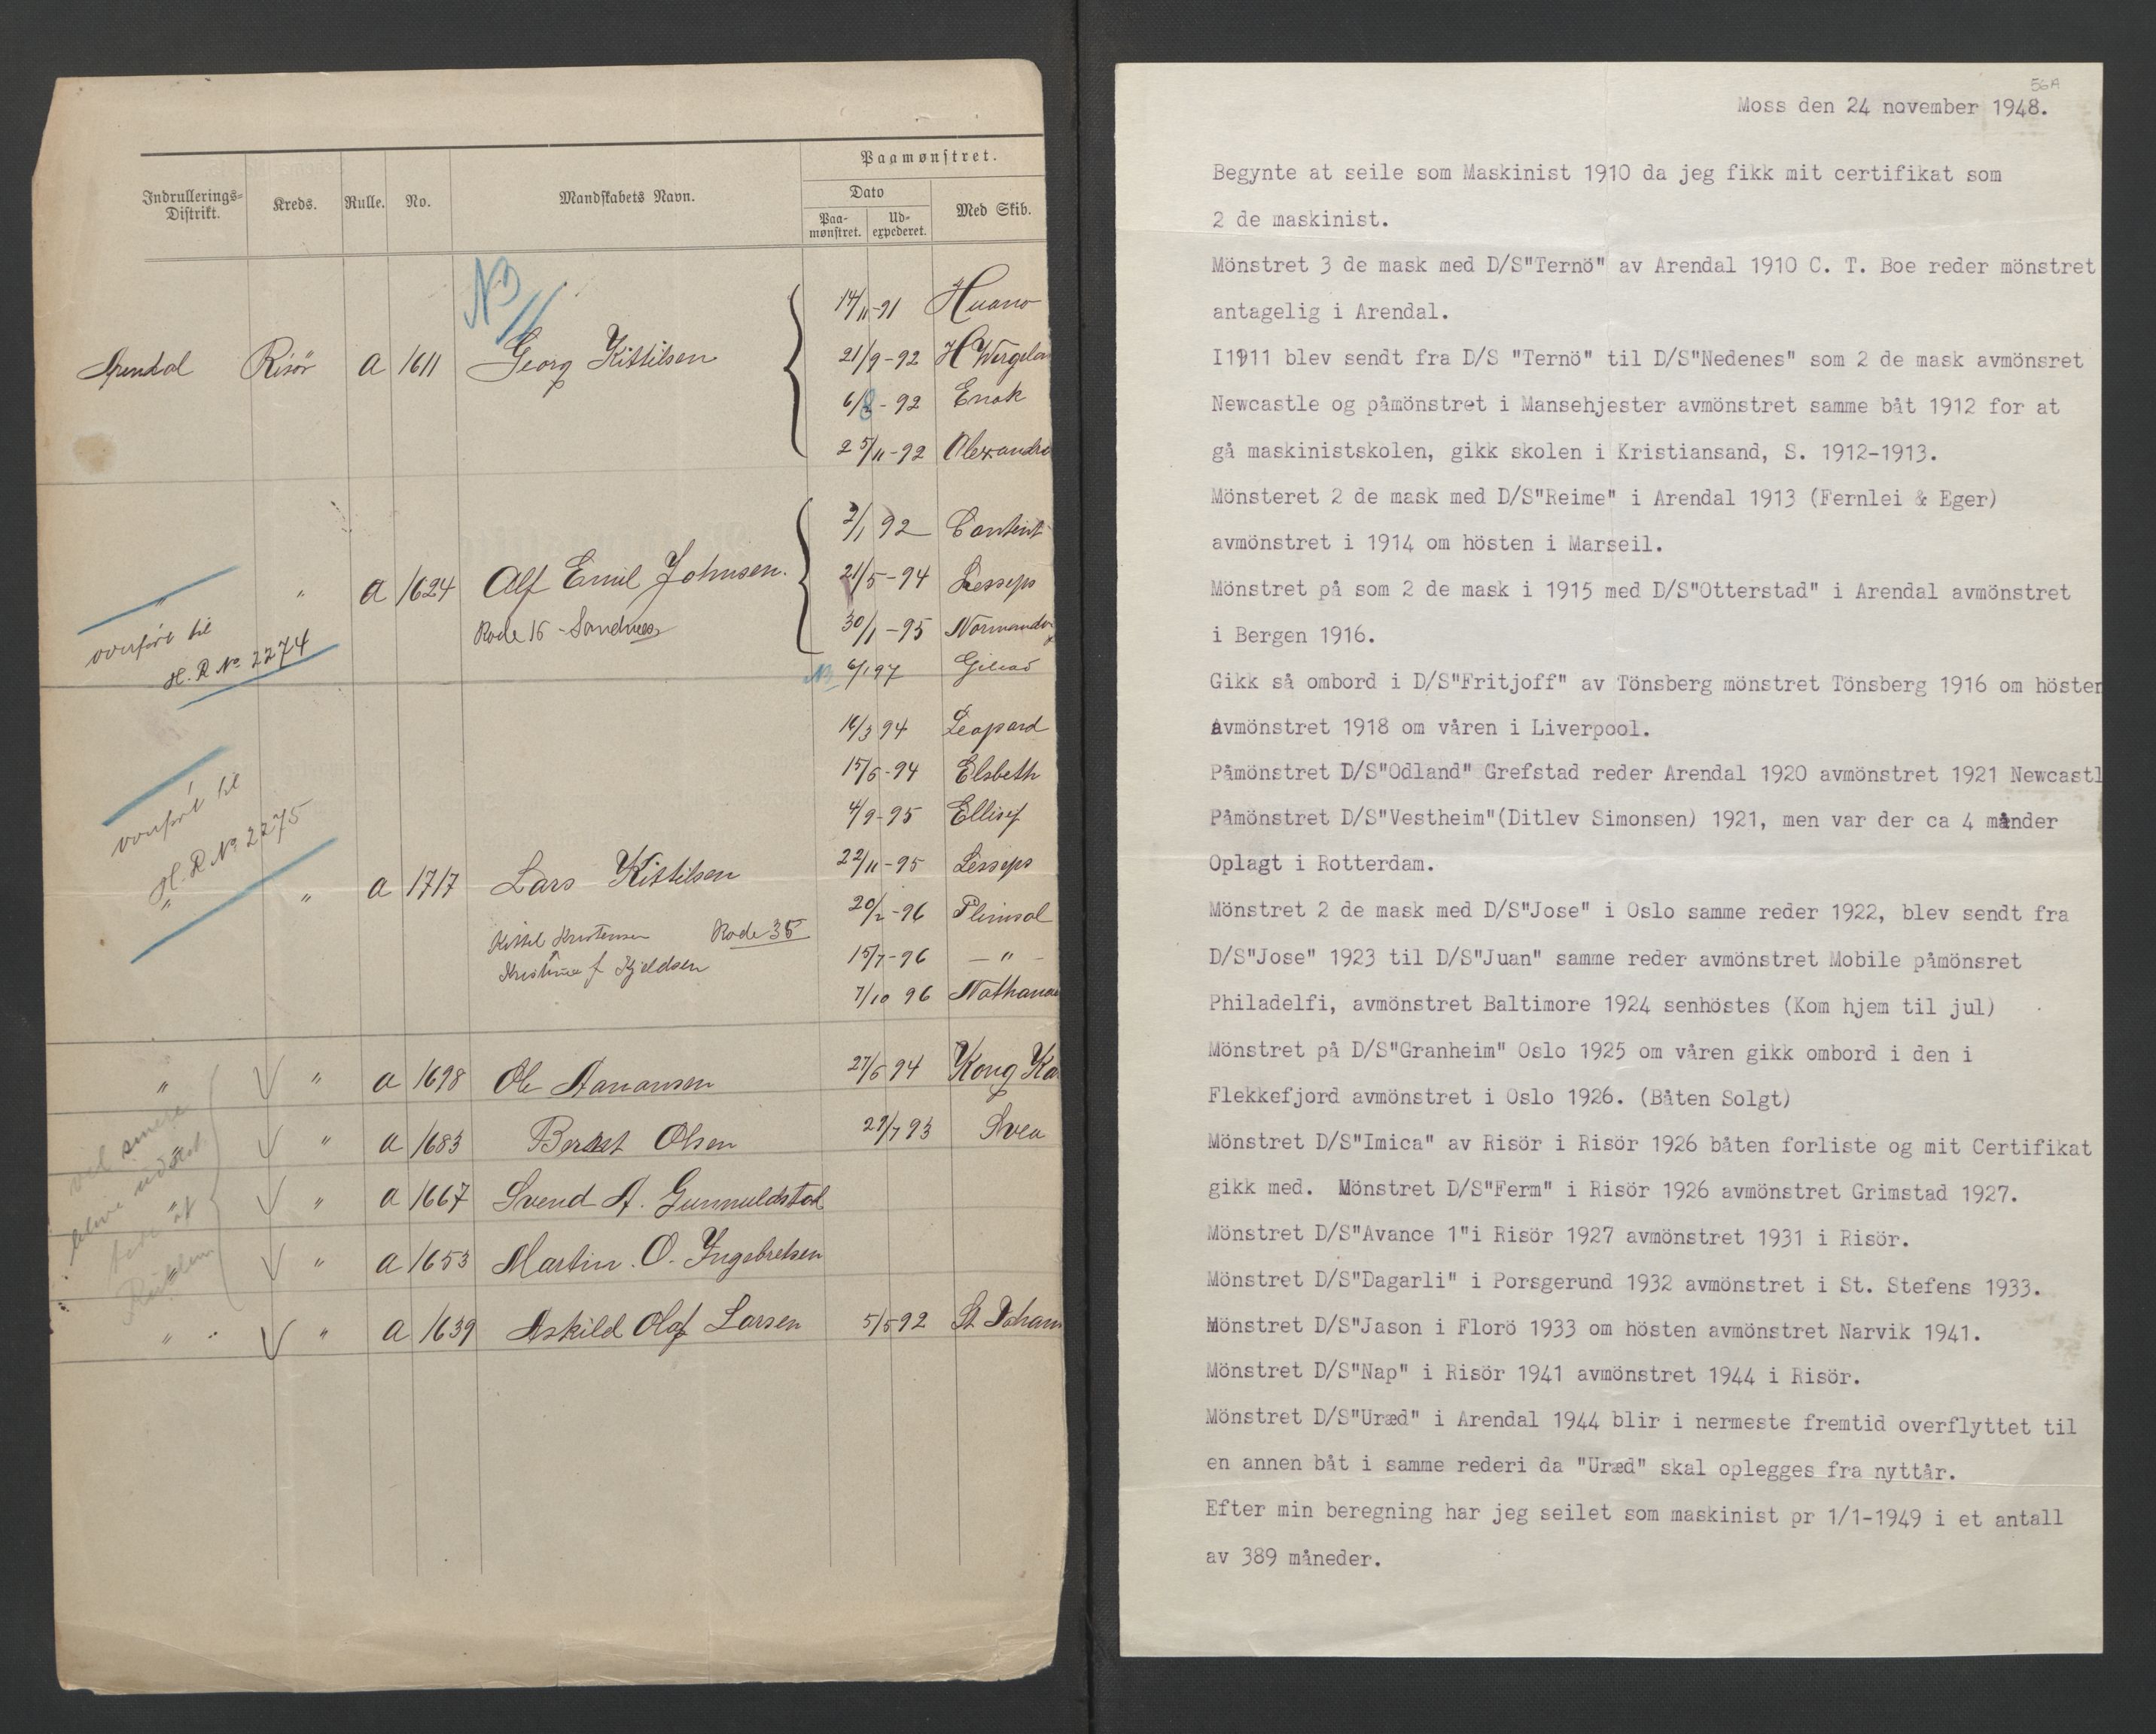 Paamønstret.
Indrullerings-
Distrikt.
Kreds.
Rulle.
No.
Mandskabets Navn.
Dato
Med Skib.
Paa-
mønstret.
Ud-
expederet.
NB
Arendal Risör a 1611 Georg Kittilsen
14/11-91 Huano
21/9-92 H Vergelan
6/8-92 Enok
25/11-92 Alexandra
" " a 1624 Alf Emil Johnsen.
Rode 16 - Sandnes
overført til
H. R No. 2274
2/1 92 Contest
21/5-94 Lesseps
30/1-95 Normandy
NB 6/1 97 Gilead
16/3 94 Leopard
15/6-94 Elsbeth
4/9-95 Ellisif
22/11-95 Lesseps
20/2-96 Plimsol
15/7-96 — " —
7/10 96 Nathanae
overført til
H. R No. 2275
" " a 1717 Lars Kittilsen
Kittel Kristensen Rode 35
Kristine f Kjeldsen
" " a 1698 Ole Aanonsen 27/6 94 Kong Ka
" " a 1683 Berent Olsen 29/7 93 Svea
" " a 1667 Svend A. Gunnuldstad
" " a 1653 Martin. O. Ingebretsen
" " a 1639 Askild Olaf Larsen 5/5 92 St Johan
56A
Moss den 24 november 1948.
Begynte at seile som Maskinist 1910 da jeg fikk mit certifikat som
2 de maskinist.
Mönstret 3 de mask med D/S"Ternö" av Arendal 1910 C. T. Boe reder mönstret
antagelig i Arendal.
I1911 blev sendt fra D/S "Ternö" til D/S"Nedenes" som 2 de mask avmönsret
Newcastle og påmönstret i Mansehjester avmönstret samme båt 1912 for at
gå maskinistskolen, gikk skolen i Kristiansand, S. 1912-1913.
Mönsteret 2 de mask med D/S"Reime" i Arendal 1913 (Fernlei & Eger)
avmönstret i 1914 om hösten i Marseil.
Mönstret på som 2 de mask i 1915 med D/S"Otterstad" i Arendal avmönstret
i Bergen 1916.
Gikk så ombord i D/S"Fritjoff" av Tönsberg mönstret Tönsberg 1916 om hösten
Avmönstret 1918 om våren i Liverpool.
Påmönstret D/S"Odland" Grefstad reder Arendal 1920 avmönstret 1921 Newcastl
Påmönstret D/S"Vestheim"(Ditlev Simonsen) 1921, men var der ca 4 månder
Oplagt i Rotterdam.
Mönstret 2 de mask med D/S"Jose" i Oslo samme reder 1922, blev sendt fra
D/S"Jose" 1923 til D/S"Juan" samme reder avmönstret Mobile påmönsret
Philadelfi, avmönstret Baltimore 1924 senhöstes (Kom hjem til jul)
Mönstret på D/S"Granheim" Oslo 1925 om våren gikk ombord i den i
Flekkefjord avmönstret i Oslo 1926. (Båten Solgt)
Mönstret D/S"Imica" av Risör i Risör 1926 båten forliste og mit Certifikat
gikk med. Mönstret D/S"Ferm" i Risör 1926 avmönstret Grimstad 1927.
Mönstret D/S"Avance 1"i Risör 1927 avmönstret 1931 i Risör.
Mönstret D/S"Dagarli" i Porsgerund 1932 avmönstret i St. Stefens 1933.
Mönstret D/S"Jason i Florö 1933 om hösten avmönstret Narvik 1941.
Mönstret D/S"Nap" i Risör 1941 avmönstret 1944 i Risör.
Mönstret D/S"Uræd" i Arendal 1944 blir i nermeste fremtid overflyttet til
en annen båt i samme rederi da "Uræd" skal oplegges fra nyttår.
Efter min beregning har jeg seilet som maskinist pr 1/1-1949 i et antall
av 389 måneder.